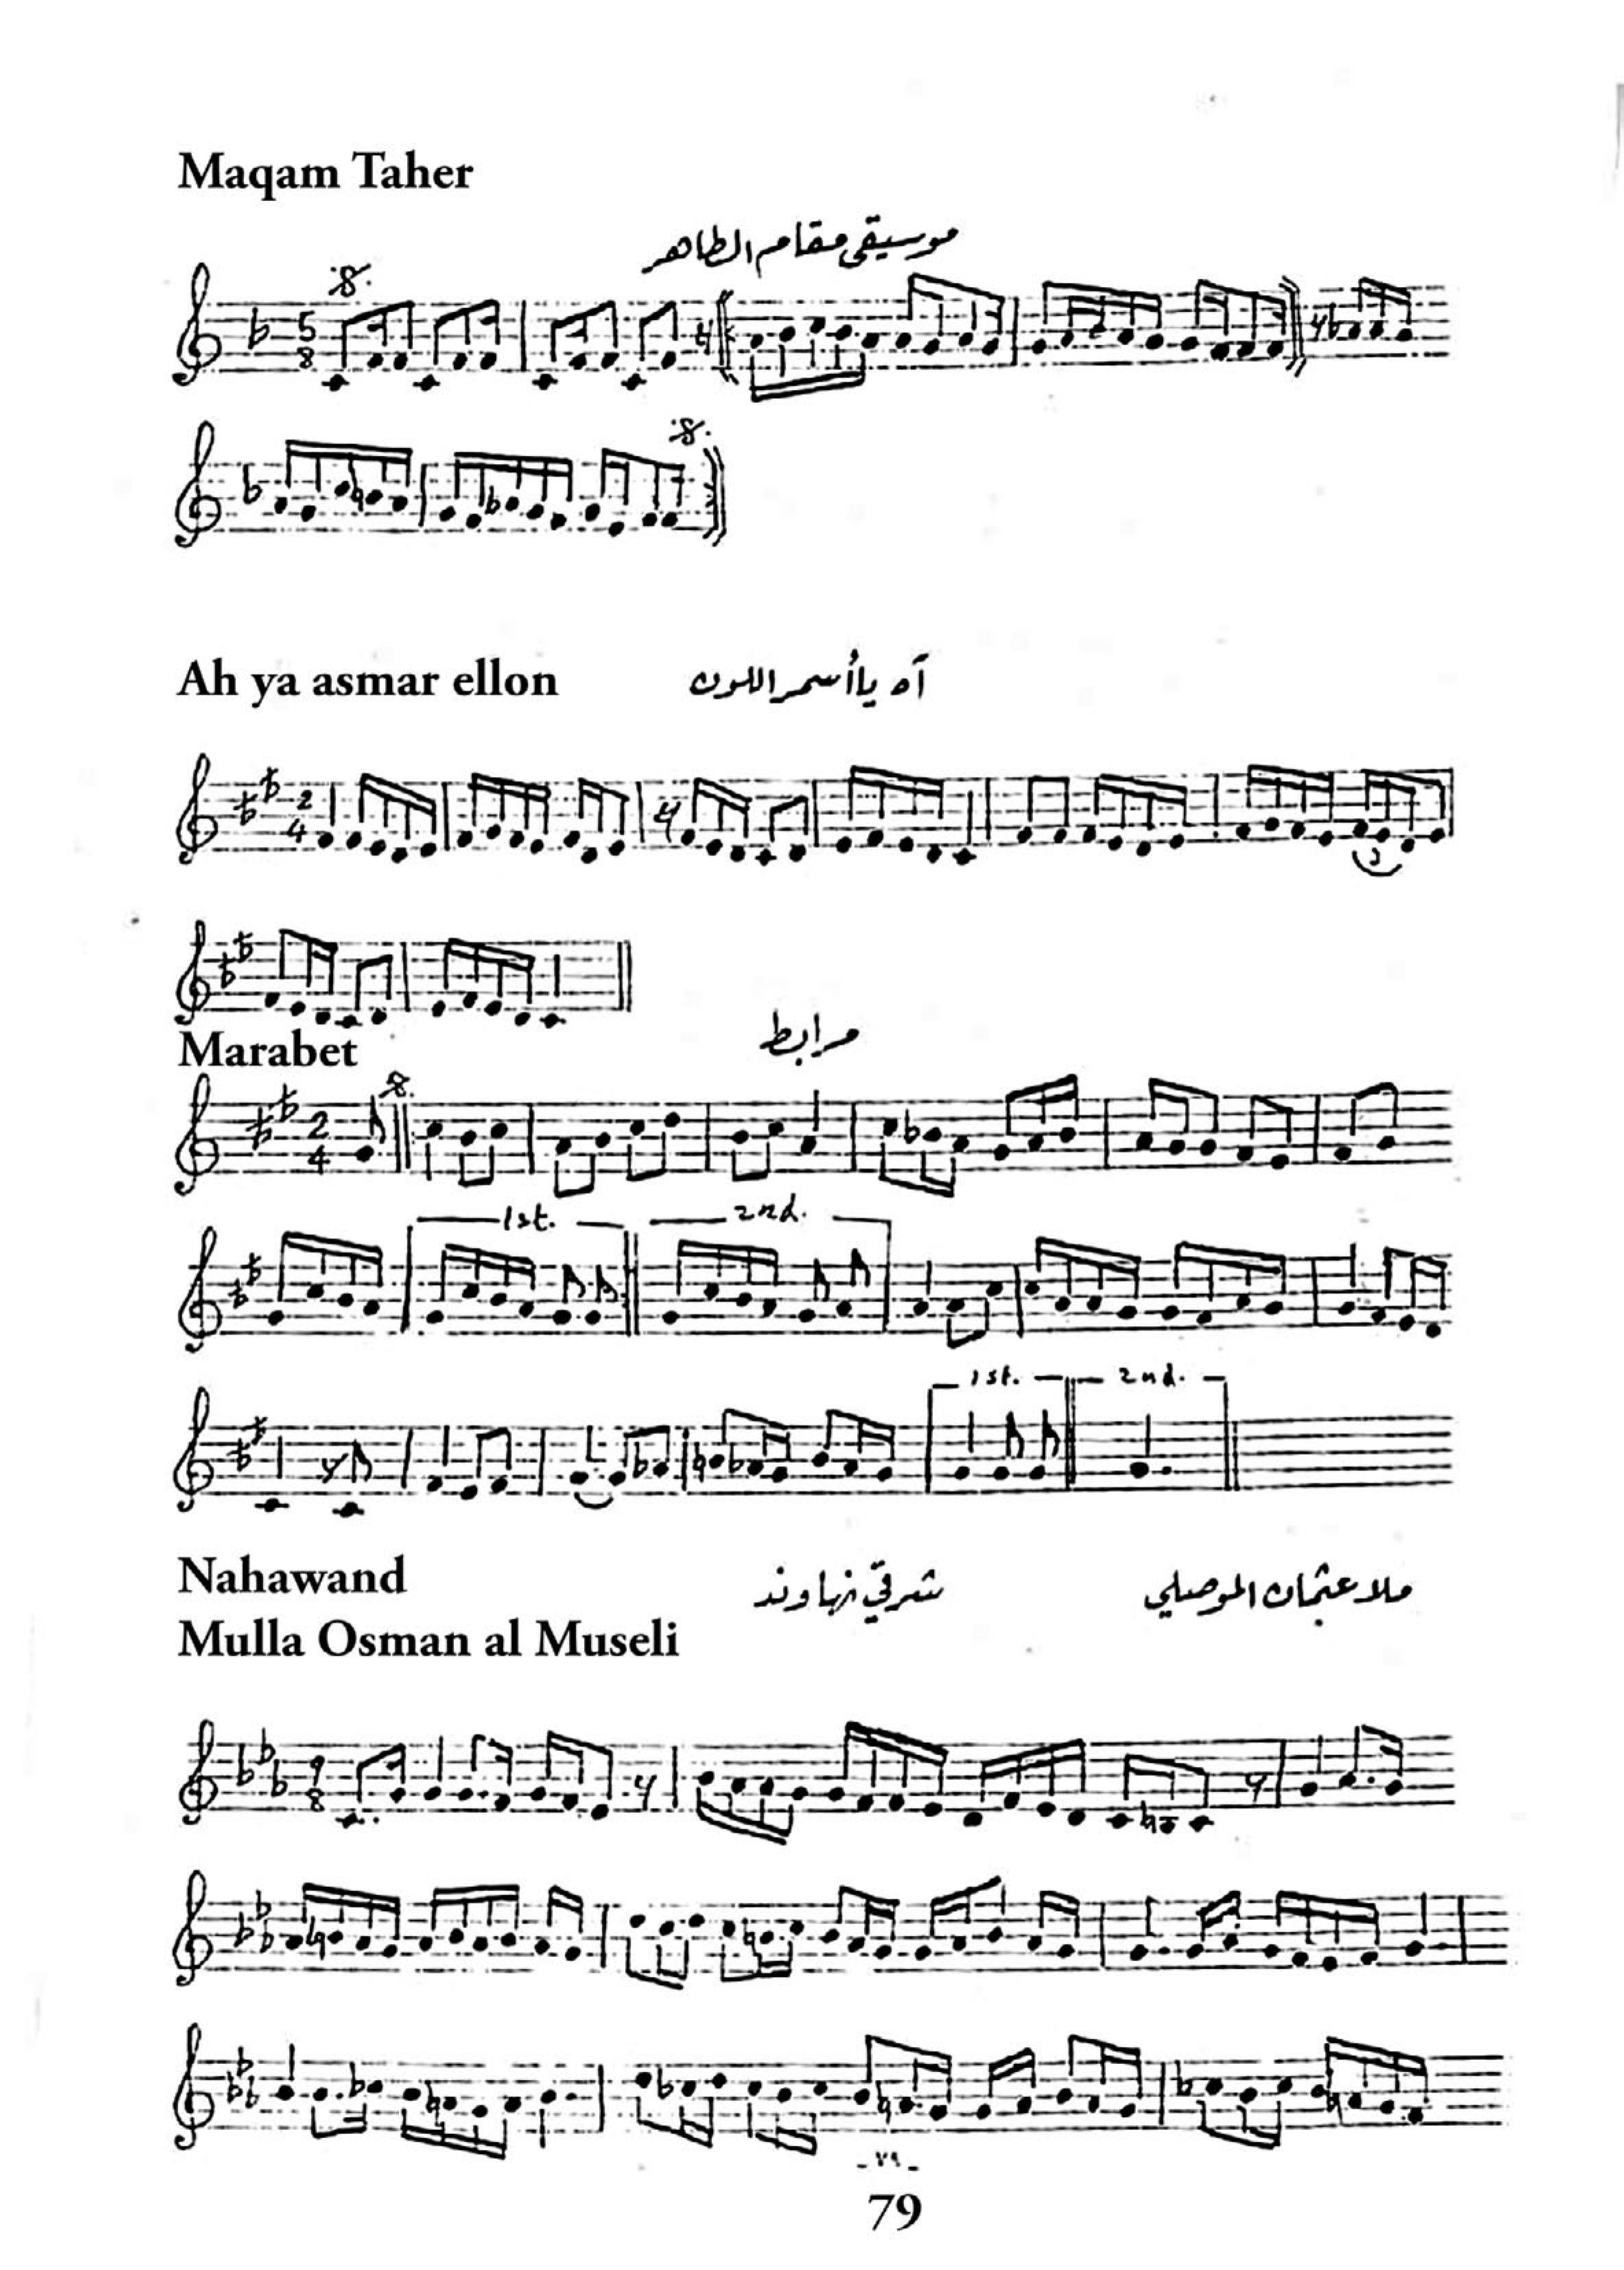 Maqam Taher
موسيقى مقام الطاهر
5
8
Ah ya asmar ellon آه يا أسمر اللون
2
4
3
Marabet مرابط
2
4
1st. 2nd.
1st. 2nd.
Nahawand شرقي نهاوند ملا عثمان الموصلي
Mulla Osman al Museli
9
8
- ٧٩ -
79